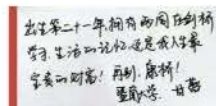 出生第二十一年，拥有两周在剑桥
学习、生活的记忆，这是我人生最
宝贵的财富！再别，康桥！
暨南大学